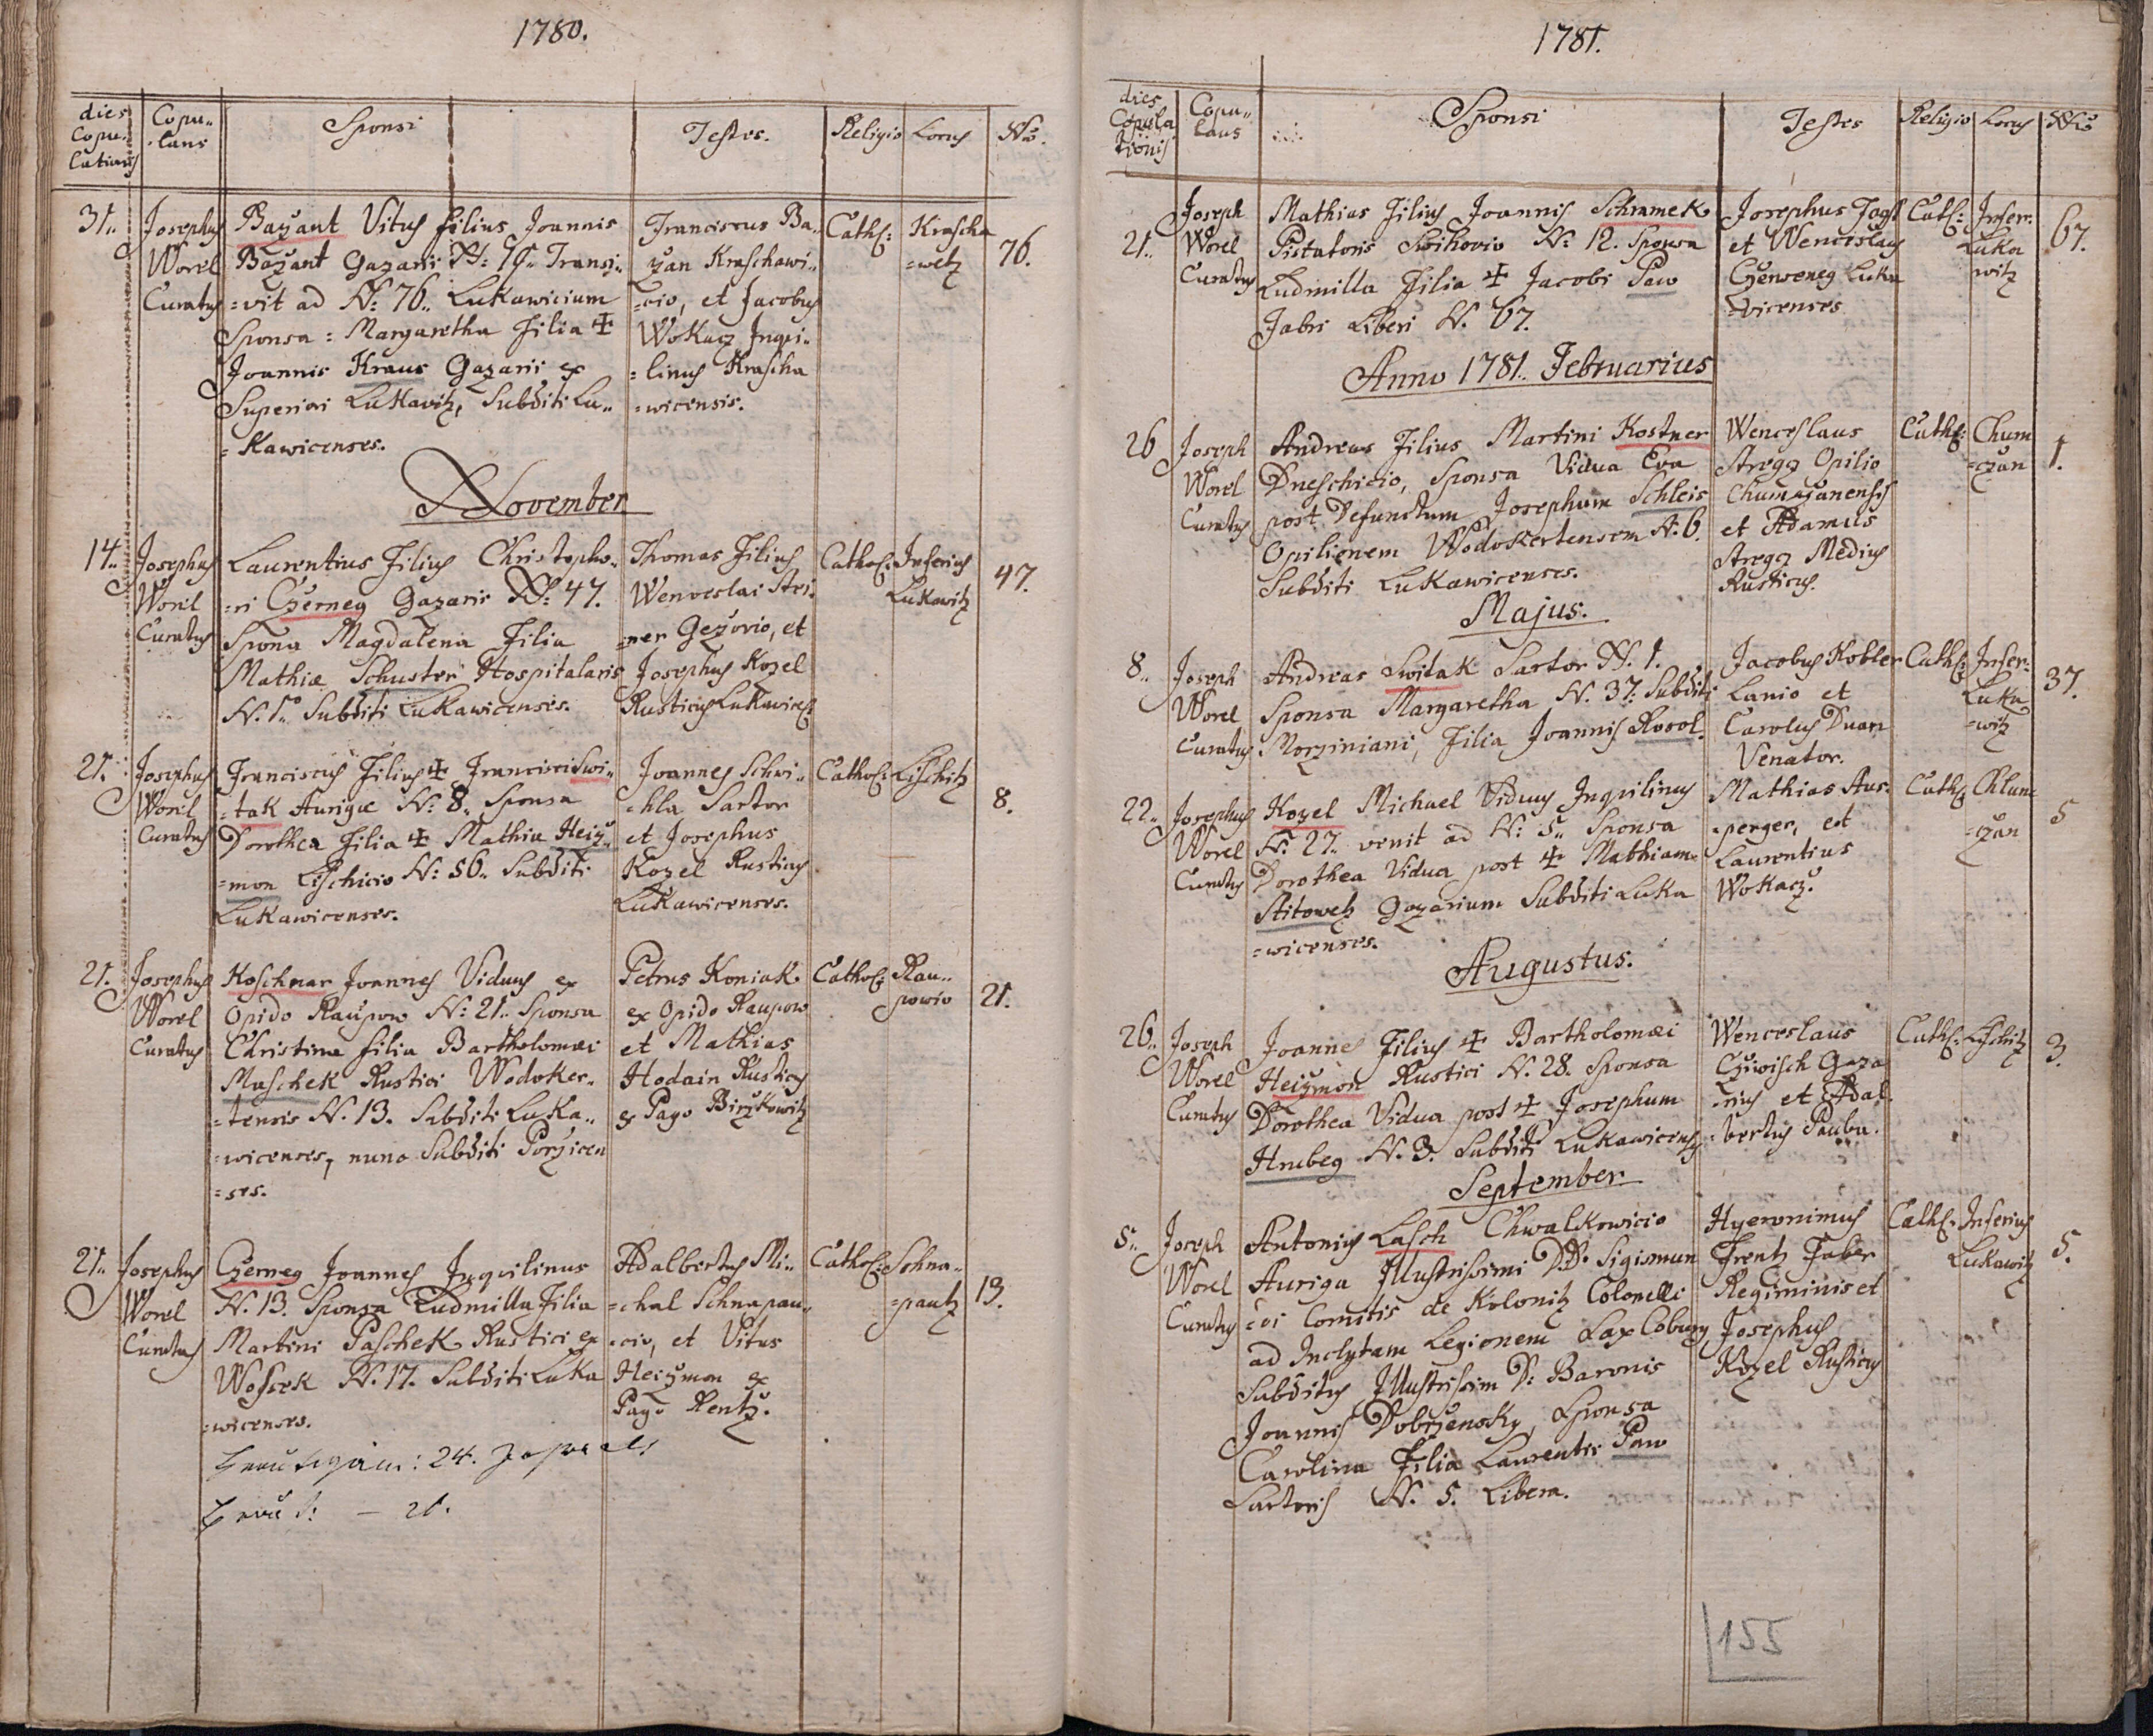 1780.
dies Copu= lationis
Copu= lans
Sponsi
Testes.
Religio
Locus
Nro.
31.
Josephus
Worel
Curatus
Bazant Vitus filius Joannis
Bazant Gazarii N:
=vit ad N: 76. Lukawicium
Sponsa: Margaretha Filia ✠
Joannis Kraus Gazarii ex
Superiori Lukawitz, Subditi Lu=
=Kawicenses.
Franciscus Ba=
zan Kraschawi=
=cio, et Jacobus
Wokacz Inqui=
=linus Krascha
=wicensis.
Cath:
Krascha
=wetz
76.
November
14.
Josephus
Worel
Curatus
Laurentius Filius Christopho=
=ri Czerney Gazarii N: 47.
Sponsa Magdalena Filia
Mathiæ Schuster Hospitalaris
N. 1. Subditi Lukawicenses.
Thomas Filius
Wenceslai Stei
=ner Gezovio, et
Josephus Kozel
Rusticus Lukawicen:
Cathol:
Inferius
Lukawitz
47.
21.
Josephus
Worel
Curatus
Franciscus Filius ✠ Francisci Swi=
=tak Aurigæ N: 8. Sponsa
Dorothea Filia ✠ Mathiæ Heiz=
=mon Lischicio N: 56. Subditi
Lukawicenses.
Joannes Schwi=
=hla Sartor
et Josephus
Kozel Rusticus
Lukawicenses.
Cathol:
Lischitz
8.
21.
Josephus
Worel
Curatus
Koschnar Joannes Viduus ex
Opido Raupow N: 21. Sponsa
Christina filia Bartholomæi
Maschek Rustici Wodoker=
=tensis N. 13. Subditi Luka=
=wicenses, nunc Subditi Porzicen
=ses.
Petrus Koniak
ex Opido Raupow
et Mathias
Hodain Rusticus
ex Pago Birzkowitz
Cathol:
Rau=
powio
21.
21.
Josephus
Worel
Curatus
Czerney Joannes Inquilinus
N. 13. Sponsa Ludmilla Filia
Martini Paschek Rustici ex
Wosek N. 17. Subditi Luka
=wicenses.
Adalbertus Mi=
=chal Schnapau=
=cio, et Vitus
Heizmon ex
Pago Rentz.
Cathol:
Schna=
=pautz
13.
Bräutigam: 24. Jahr alt
Braut: — 21.
1781.
dies Copula tionis
Copu= lans
Sponsi
Testes
Religio
Locus
Nro
21.
Joseph
Worel
Curatus
Mathias Filius Joannis Schramek
Swihovio N: 12. Sponsa
Ludmilla Filia ✠ Jacobi Paw
Fabri Liberi N. 67.
Josephus
et Wenceslaus
Czerweney Luka
=wicenses
Cath:
Infer:
Luka
witz
67.
Anno 1781. Februarius
26
Joseph
Worel
Curatus
Andreas Filius Martini Kostner
Dneschicio, Sponsa Vidua Eva
post Defunctum Josephum Schleis
Opilionem Wodokertensem N. 6.
Subditi Lukawicenses.
Wenceslaus
Stregz Opilio
Chumczanensis
et Adamus
Stregz Medius
Rusticus.
Cath:
Chum
=czan
1.
Majus.
8.
Joseph
Worel
Curatus
Andreas Switak Sartor N. 1.
Sponsa Margaretha N. 37. Subditi
Morziniani, Filia Joannis Rosol.
Jacobus Kobler
Lanio et
Carolus Duan
Venator.
Cath:
Infer:
Luka
=witz
37.
22.
Josephus
Worel
Curatus
Kozel Michael Viduus Inquilinus
N. 27. venit ad N: 5. Sponsa
Dorothea Vidua post ✠ Mathiam
Stitowetz Gazarium Subditi Luka
=wicenses.
Mathias Aus=
=perger, et
Laurentius
Wokacz.
Cath:
Chlum
=czan
5
Augustus.
26.
Joseph
Worel
Curatus
Joannes Filius ✠ Bartholomæi
Heizmon Rustici N. 28. Sponsa
Dorothea Vidua post ✠ Josephum
Hrubey N. 3. Subditi Lukawicenses
Wenceslaus
Cziwisch Gaza
=rius et Adal
=bertus Pauba.
Cath:
Lischitz
3.
September
5.
Joseph
Worel
Curatus
Antonius Lasch Chwalkowicio
Auriga Illustrissimi D. D. Sigismun
=di Comitis de Kolonitz Colonelli
ad Inclytam Legionem Sax Coburg
Subditus Illustrissim D: Baronis
Joannis Dobrzensky, Sponsa
Carolina Filia Laurentii Paw
Sartoris N. 5. Libera.
Hyeronimus
Frentz Faber
Regiminis et
Josephus
Kozel Rusticus
Cath:
Inferius
Lukawitz
5.
155